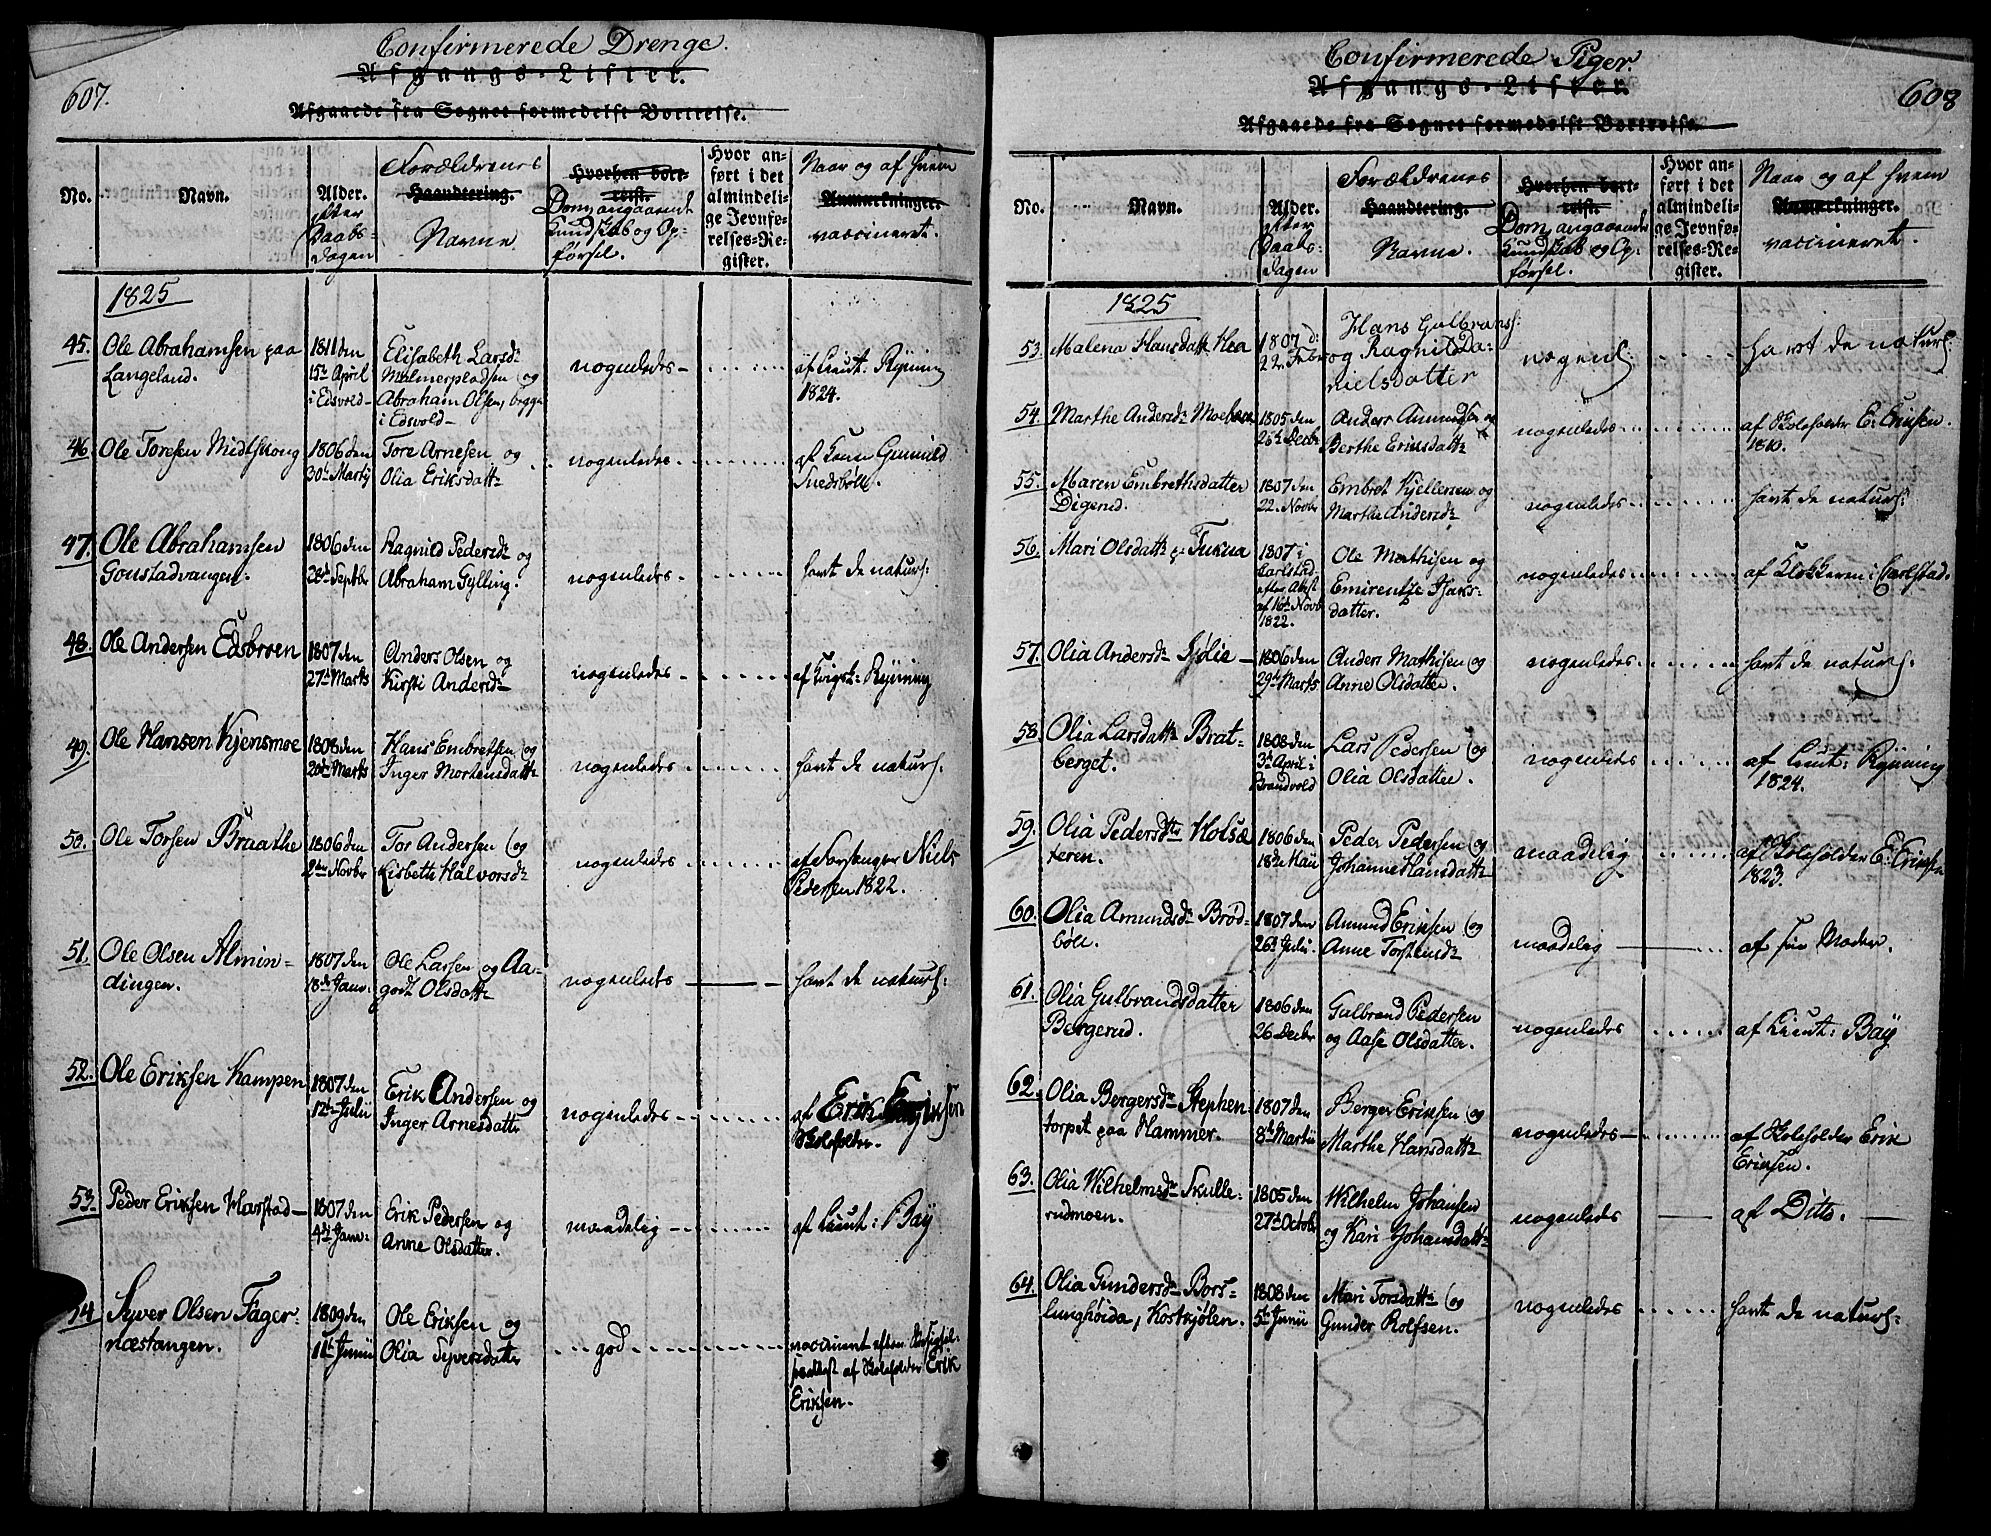 607.
Confirmerede Drenge.
Afgangs-Lister.
Afgaaede fra Sognet formedelst Bortreise.
No.
Navn.
Alder.
efter
Daabs-
dagen
Forældrenes
Haandtering.
Navne.
Hvorhen bort-
reist.
Dom, angaaende
Kundskab og Op-
førsel.
Hvor an-
ført i det
almindeli-
ge Jevnfø-
relses-Re-
gister.
Naar og af hvem
Anmærkninger.
vaccineret.
1825
45. Ole Abrahamsen paa
Langeland.
1811 den
15de April
i Edsvold-
Elisabeth Larsd:
Malmerpladsen og
Abraham Olsen, begge
i Edsvold-
nogenledes-
af Lieut. Rÿnning
1824.
46. Ole Torsen Midtskong
1806 den
30te Martÿ
Tore Arnesen og
Olia Eriksdatt:
nogenledes
af Gunnild
47. Ole Abrahamsen
Gonstadvangen.
1806 den
28de Septbr
Ragnild Pedersd: og
Abraham Gylling.
nogenledes
havt de natur:
48. Ole Andersen Edsbroen
1807 den
27de Marts
Anders Olsen og
Kirsti Andersd:
nogenledes
af Rÿnning
49. Ole Hansen Kjensmoe
1808 den
20de Marts
Hans Embretsen og
Inger Mortensdatt:
nogenledes
havt de naturl:
50. Ole Torsen Braathe
1806 den
2den Novbr
Tor Andersen og
Lisbeth Halvorsd:
nogenledes
af Forsanger Niels
Pedersen 1822.
51. Ole Olsen Almin-
dingen.
1807 den
18de Janv:
Ole Larsen og Aa-
godt Olsdatt:
nogenledes
havt de naturl:
52. Ole Eriksen Kampen
1807 den
12te Julii
Erik Andersen og
Inger Arnesdatt:
nogenledes
af Erik Eriksen
Skoleholder.
53. Peder Eriksen Harstad-
1807 den
4de Janv:
Erik Pedersen og
Anne Olsdatter.
maadelig
af Lieut: Baÿ
54. Syver Olsen Fager-
næstangen.
1809 den
11te Junii
Ole Eriksen og
Olia Syversdatter
god
vaccineret efter
af Skoleholder Erik
Eriksen.
608
Confirmerede Piger.
Afgangs-Lister.
Afgaaede fra Sognet formedelst Bortreise.
No.
Navn.
Alder.
efter
Daabs-
dagen
Forældrenes
Haandtering.
Navne.
Hvorhen bort-
reist.
Dom, angaaende
Kundskab og Op-
førsel.
Hvor an-
ført i det
almindeli-
ge Jevnfø-
relses-Re-
gister.
Naar og af hvem
Anmærkninger.
vaccineret.
1825
53. Malena Hansdatt: Hea
1807 d:
22. Febr
Hans Gulbrans:
og Ragnild Da-
nielsdatter
nogenl:
havt de naturl:
54. Marthe Andersd:
1805 den
26de Decbr
Anders Amundsen og
Berthe Eriksdatt:
nogenledes
af Skoleholder E: Eriksen.
1810.
55. Maren Embrethsdatter
Digerud.
1807 den
22. Novbr
Embret Kjellersen og
Marthe Andersd:
nogenledes
havt de naturl:
56. Mari Olsdatt:
1807 i
Carlstad
efter Attest
af 16de Novb
1822.
Ole Mathisen og
Emirentze Isaks-
datter.
nogenledes
af Klokkeren i Carlstad.
57. Olia Andersd: Sjølie
1806 den
29de Marts
Anders Mathisen og
Anne Olsdatter.
nogenledes
havt de naturl:
58. Olia Larsdatt: Brat-
berget.
1808 den
3de April i
Brandvold
Lars Pedersen og
Olia Olsdatter.
nogenledes
af Lieut: Rÿnning
1824.
59. Olia Pedersdtr Holsæ-
teren.
1806 den
18de Maii
Peder Pedersen og
Johanne Hansdatt:
maadelig
af Skoleholder E: Eriksen
1823.
60. Olia Amundsd: Brød-
bøll.
1807 den
26de Julii
Amund Eriksen og
Anne Torstensd:
maadelig
af sin Moder.
61. Olia Gulbrandsdatter
Bergerud.
1806 den
26 Decbr
Gulbrand Pedersen
og Aase Olsdatter.
nogenledes
af Lieut: Baÿ
62. Olia Bergersd: Stephen-
torpet paa Hammer.
1807 den
8de Martii
Berger Eriksen og
Marthe Hansdatt:
nogenledes
af Skoleholder Erik
Eriksen.
63. Olia Wilhelmsd: Skulle-
rudmoen.
1805 den
27de Octobr
Wilhelm Johansen
og Kari Johansdatt:
nogenledes
af Ditto.
64. Olia Gundersd: Bors-
lunghøida, Kostkjølen.
1808 den
5te Junii
Mari Torsdatt: og
Gunder Rolfsen.
nogenledes
havt de naturl: